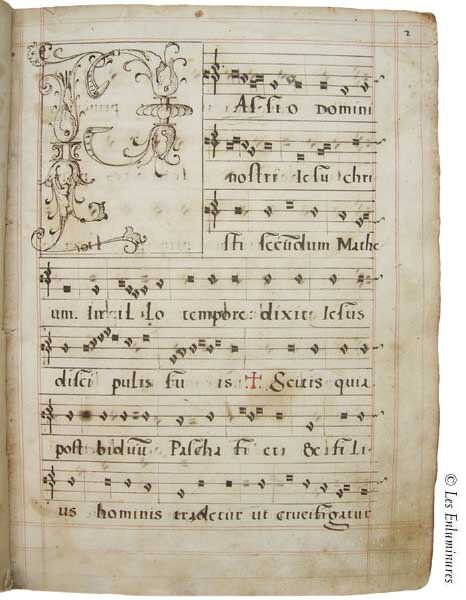 2
PAssio Domini
nostri Iesu chri
sti secūdum Mathe
um. In il lo tempore: dixit Iesus
disci pulis su is ✝. Scitis quia
post biduū Pascha fi et: & fi li
us hominis tradetur ut crucifigatur
© Les Enluminures